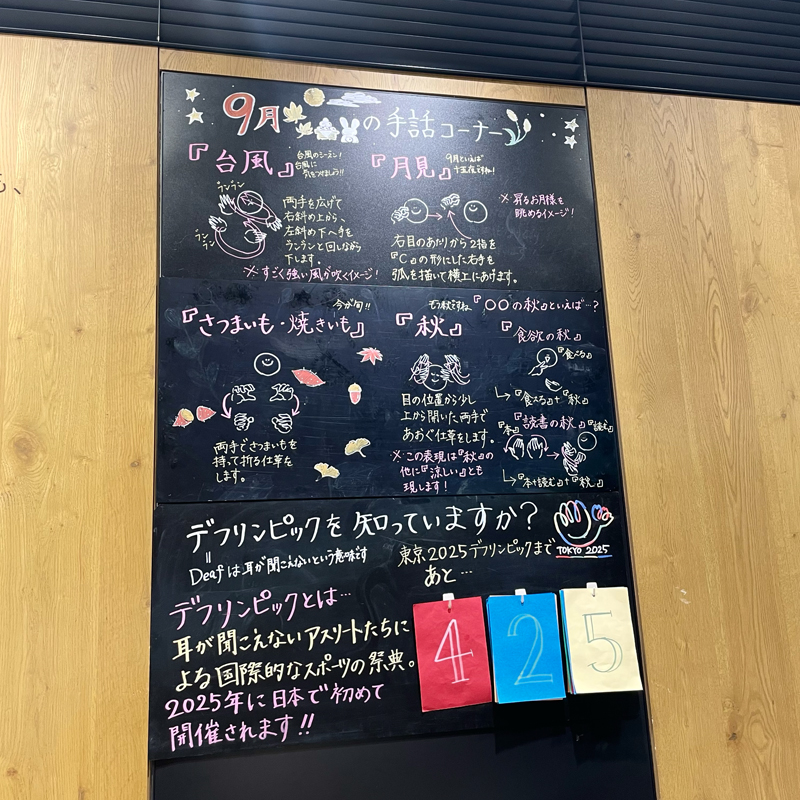 9月の手話コーナー
『台風』
台風のシーズン!
台風に
気をつけましょう!!
ランラン
ランラン
両手を広げて
右斜め上から、
左斜め下へ手を
ランランと回しながら
下します。
※すごく強い風が吹くイメージ!
『月見』
9月といえば
十五夜ですね!
※昇るお月様を
眺めるイメージ!
右目のあたりから2指を
『C』の形にした右手を
弧を描いて横上にあげます。
今が旬!!
『さつまいも・焼きいも』
両手でさつまいもを
持って折る仕草を
します。
もう秋ですね
『〇〇の秋』といえば…?
『秋』
目の位置から少し
上から開いた両手で
あおぐ仕草をします。
※この表現は『秋』の
他に『涼しい』とも
現します!
『食欲の秋』
『食べる』
↳『食べる』+『秋』
『読書の秋』
『本』
『読む』
↳『本+読む』+『秋』
デフリンピックを知っていますか?
=
Deafは耳が聞こえないという意味です
TOKYO 2025
東京2025デフリンピックまで
あと…
425
デフリンピックとは…
耳が聞こえないアスリートたちに
よる国際的なスポーツの祭典。
2025年に日本で初めて
開催されます!!